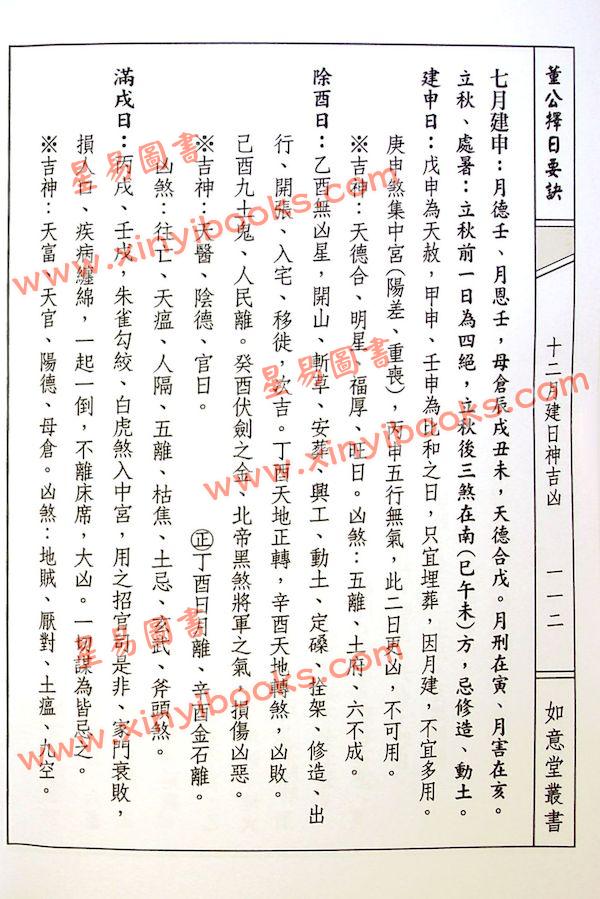 董公擇日要訣
十二月建日神吉凶
一一二
如意堂叢書
七月建申：月德壬、月恩壬，母倉辰戌丑未，天德合戊。月刑在寅、月害在亥。
立秋、處暑：立秋前一日為四絕，立秋後三煞在南(巳午未)方，忌修造、動土。
建申日：戊申為天赦，甲申、壬申為比和之日，只宜埋葬，因月建，不宜多用。
庚申煞集中宮(陽差、重喪)，丙申五行無氣，此二日更凶，不可用。
※吉神：天德合、明星、福厚、旺日。凶煞：五離、土府、六不成。
除酉日：乙酉無凶星，開山、斬草、安葬、興工、動土、定磉、拴架、修造、出
行、開張、入宅、移徙，次吉。丁酉天地正轉，辛酉天地轉煞，凶敗。
己酉九土鬼、人民離。癸酉伏劍之金、北帝黑煞將軍之氣，損傷凶惡。
※吉神：天醫、陰德、官日。　㊣丁酉日月離、辛酉金石離。
凶煞：往亡、天瘟、人隔、五離、枯焦、土忌、玄武、斧頭煞。
滿戌日：丙戌、壬戌，朱雀勾絞、白虎煞入中宮，用之招官司是非、家門衰敗，
損人口、疾病纏綿，一起一倒，不離床席，大凶。一切謀為皆忌之。
※吉神：天富、天官、陽德、母倉。凶煞：地賊、厭對、土瘟、九空。
星易圖書
www.xinyibooks.com
星易圖書
www.xinyibooks.com
星易圖書
www.xinyibooks.com